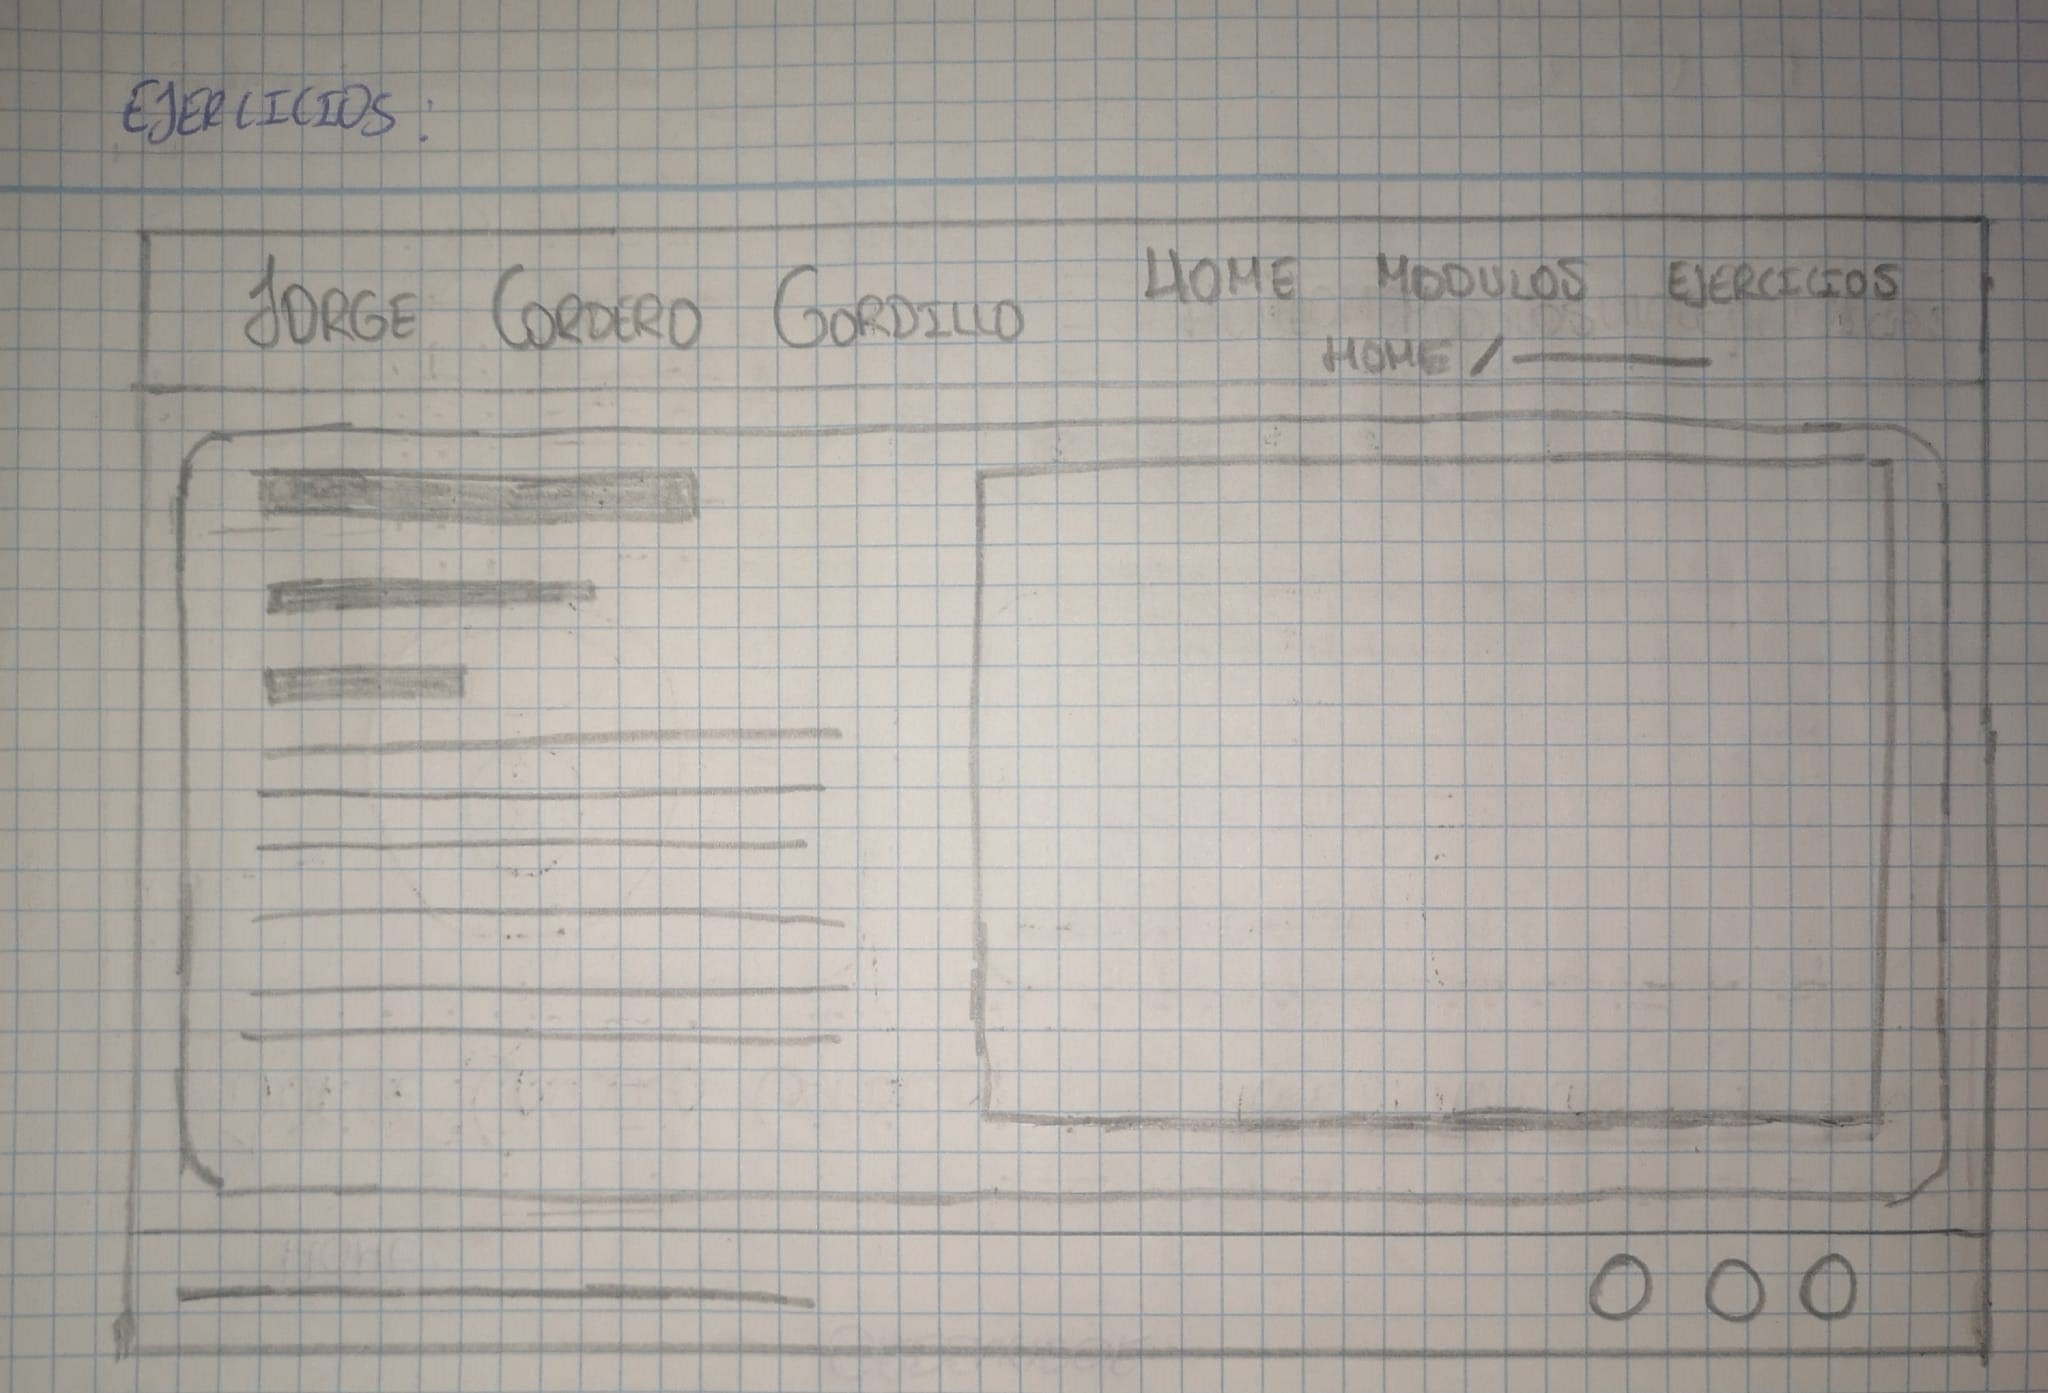 EJERCICIOS:
JORGE CORDERO GORDILLO
HOME MODULOS EJERCICIOS
HOME /